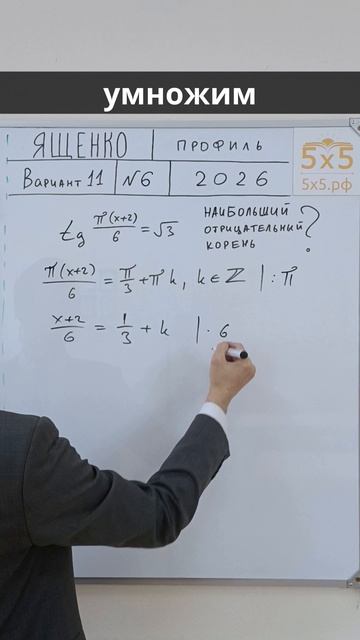 умножим
ЯЩЕНКО ПРОФИЛЬ
Вариант 11 №6 2026
5x5
5x5.рф
tg π(x+2)/6 = √3
НАИБОЛЬШИЙ
ОТРИЦАТЕЛЬНЫЙ
КОРЕНЬ ?
π(x+2)/6 = π/3 + πk, k ∈ Z | : π
x+2/6 = 1/3 + k | · 6